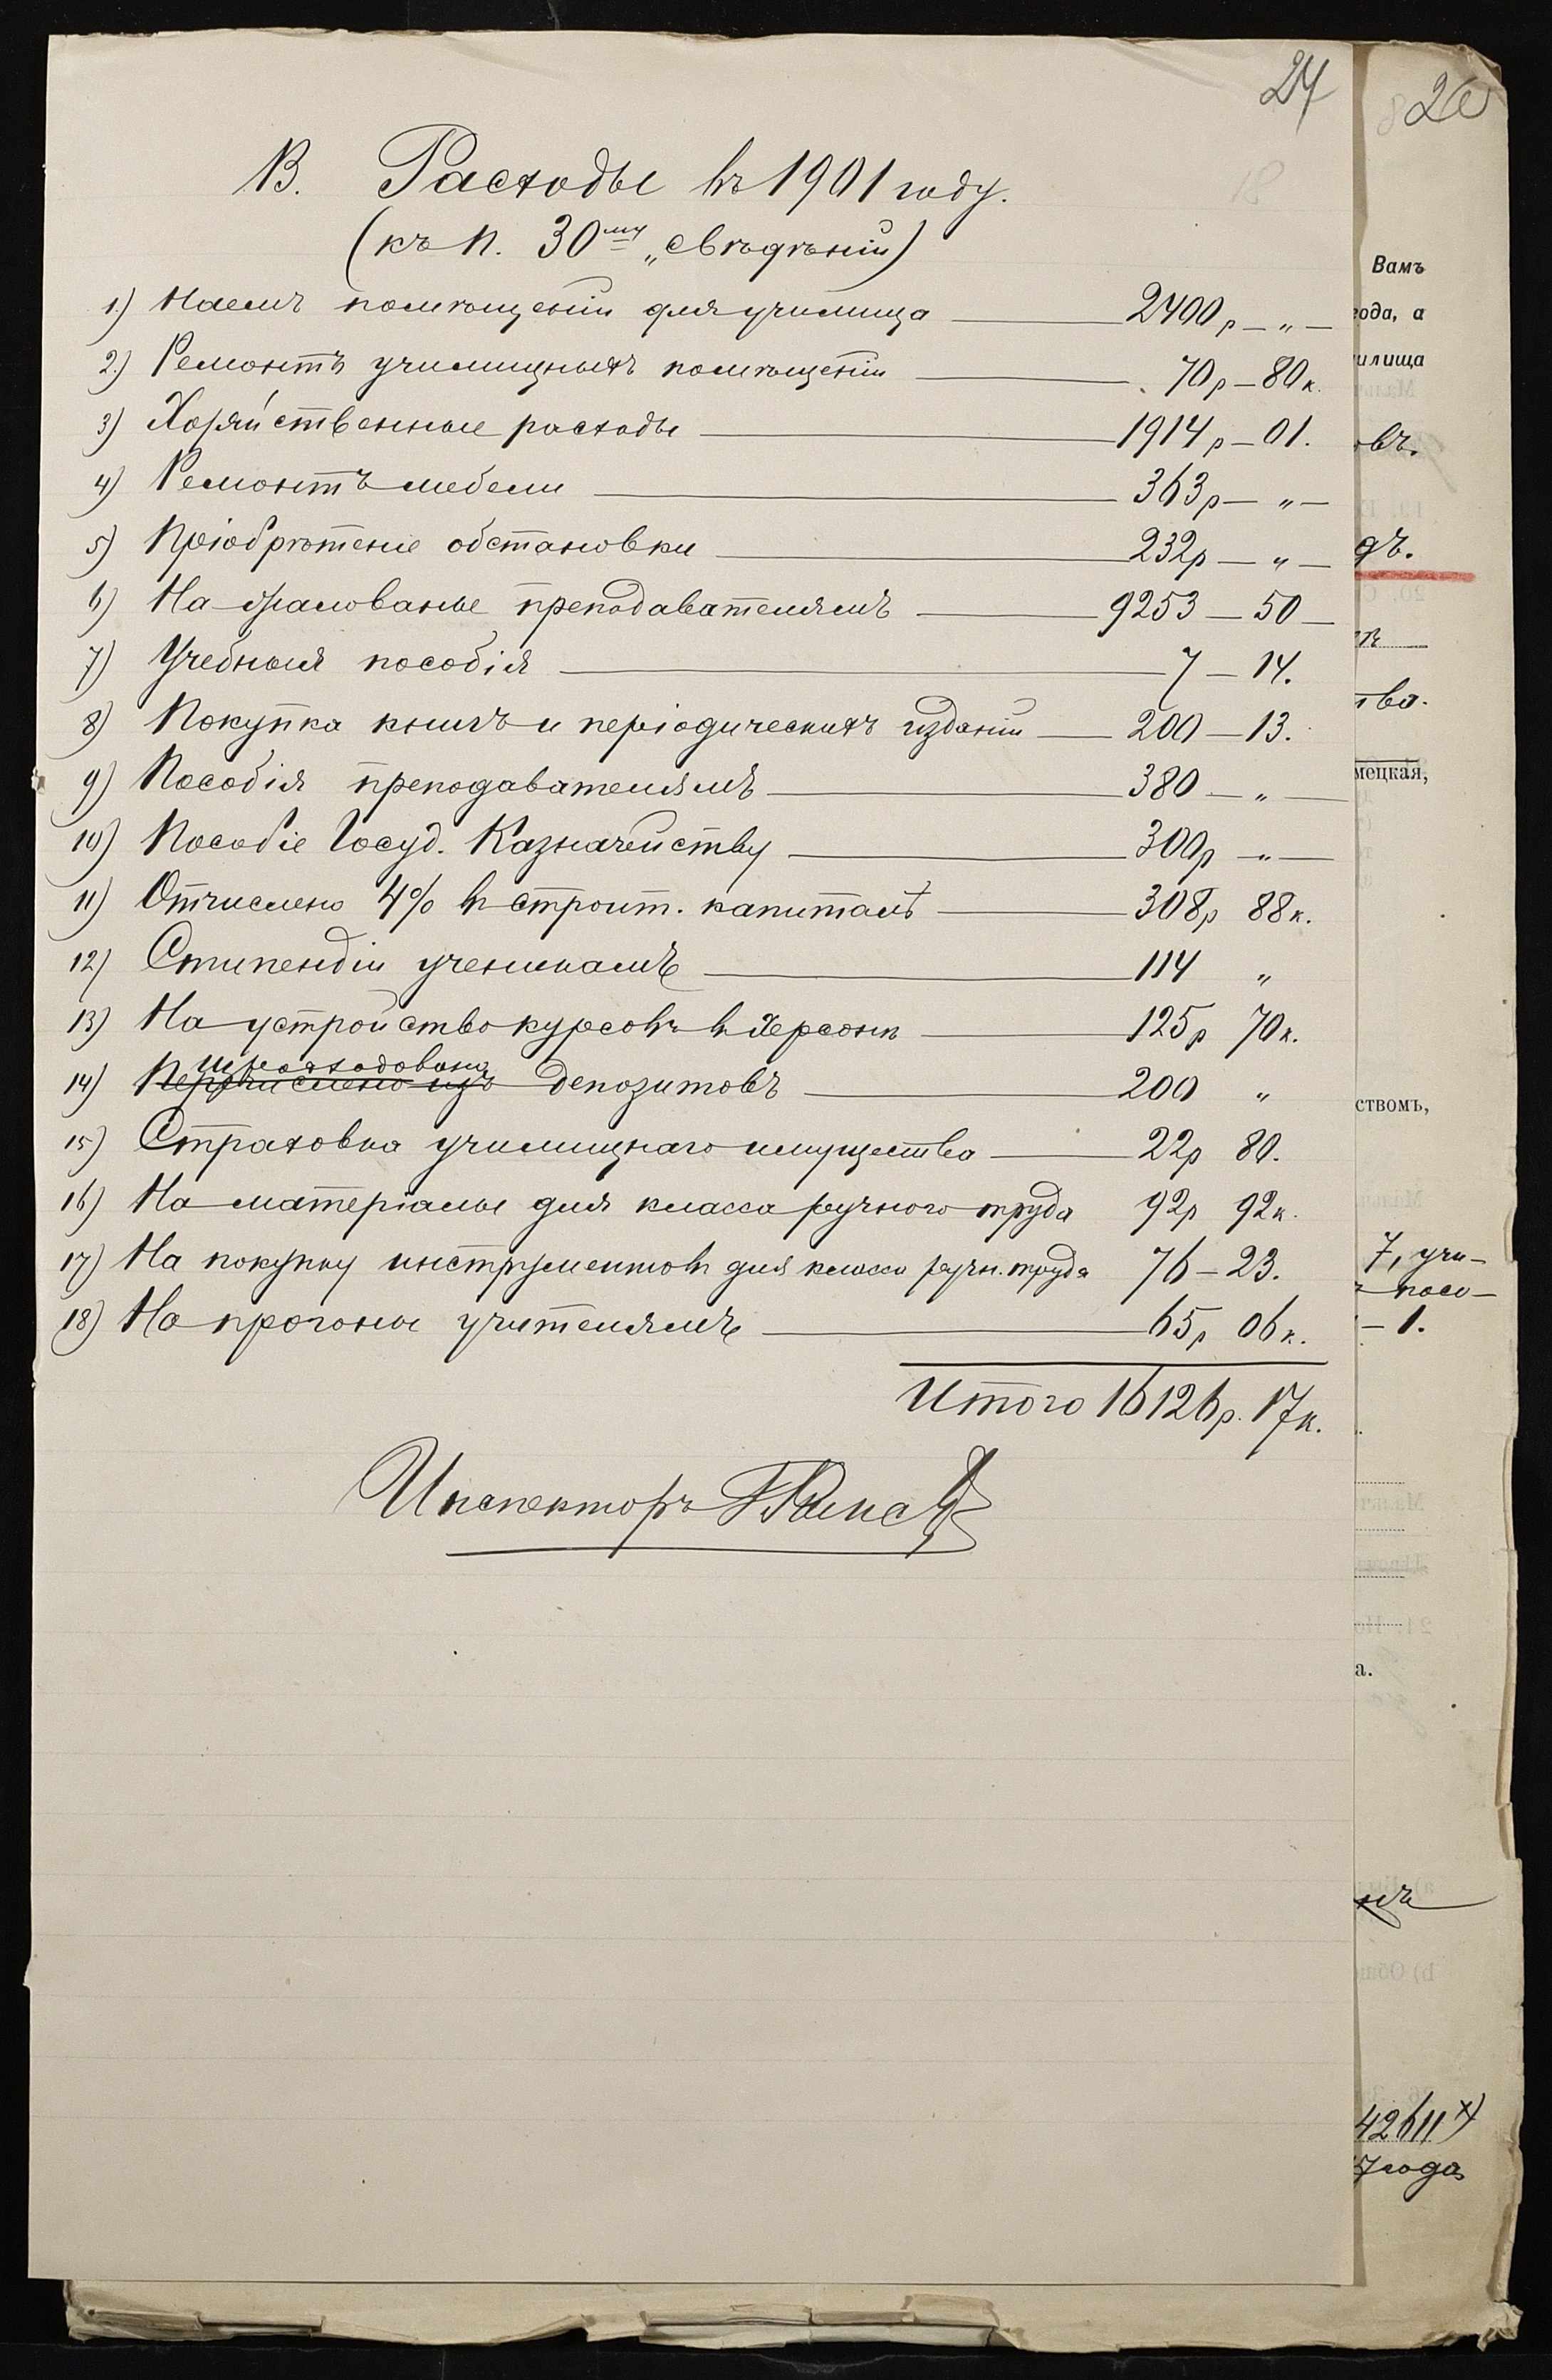 24
26
18
В. Расходы въ 1901 году.
(къ п. 30му „свѣдѣній)
1) Наемъ помѣщенія для училища — 2400 р — „ —
2) Ремонтъ училищныхъ помѣщеній — 70 р — 80 к.
3) Хозяйственные расходы — 1914 р — 01.
4) Ремонтъ мебели — 363 р — „ —
5) Пріобрѣтеніе обстановки — 232 р — „ —
6) На жалованье преподавателямъ — 9253 — 50 —
7) Учебныя пособія — 7 — 14.
8) Покупка книгъ и періодическихъ изданій — 200 — 13.
9) Пособія преподавателямъ — 380 — „ —
10) Пособіе Госуд. Казначейству — 300 р — „ —
11) Отчислено 4% въ строит. капиталъ — 308 р 88 к.
12) Стипендіи ученикамъ — 114 „
13) На устройство курсовъ въ Херсонѣ — 125 р 70 к.
израсходовано
14) Перечислено изъ депозитовъ — 200 „
15) Страховка училищнаго имущества — 22 р 80.
16) На матеріалы для класса ручного труда 92 р 92 к.
17) На покупку инструментовъ для класса ручн. труда 76 — 23.
18) На прогоны учителямъ — 65 р 06 к.
Итого 16126 р. 17 к.
Инспекторъ
Вамъ
ода, а
илища
овъ.
дъ.
тва.
мецкая,
ствомъ,
7, учи-
посо-
— 1.
а.
42611 х)
7 года